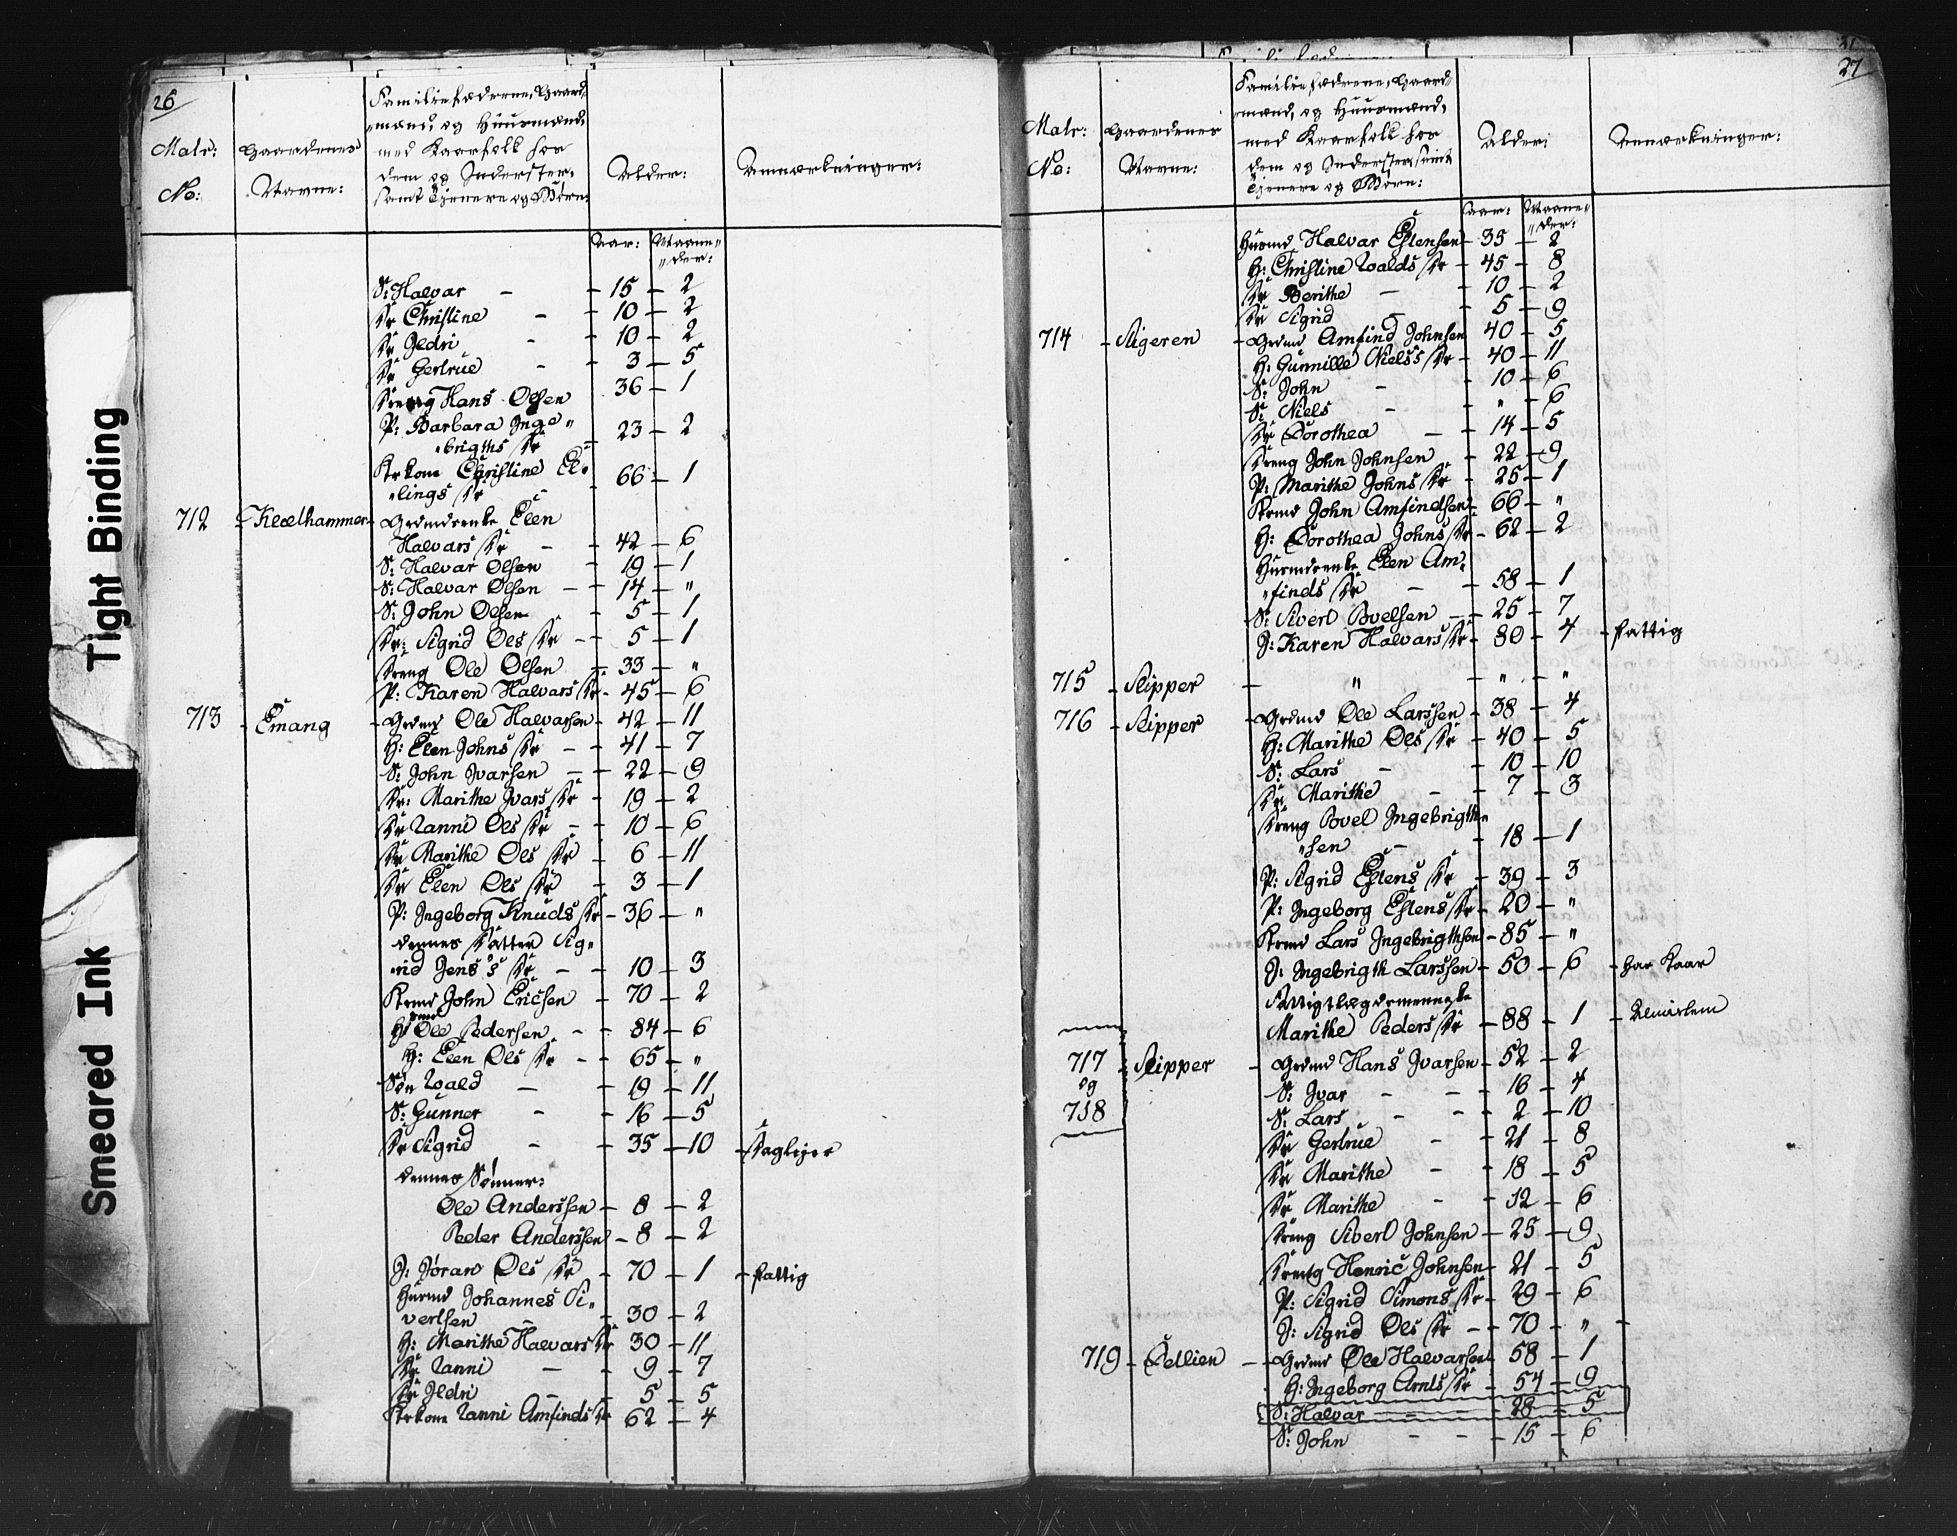 Tight Binding
Smeared Ink
26
Matr: No:
Gaardenes Navne:
Familiefædrene, Gaard-
mænd, og Huusmænd,
med Kaarfolk hos
dem og Inderster,
samt Tjenere og Børn:
Alder:
Anmærkninger:
Aar: Maane-
der:
S: Halvar – 15 – 2
Dr Christine – 10 – 2
Dr Ildri – 10 – 2
Dr Gertrue – 3 – 5
Dreng Hans Olsen 36 – 1
P: Barbara Inge-
brigths Dr – 23 – 2
Krkone Christine El-
lings Dr – 66 – 1
712 – Kleelhammer – Grdmdenke Elen
Halvars Dr – 42 – 6
S: Halvar Olsen – 19 – 1
S: Halvar Olsen – 14 – "
S: John Olsen – 5 – 1
Dr: Sigrid Ols Dr – 5 – 1
Dreng Ole Olsen – 33 – "
P: Karen Halvars Dr – 45 – 6
713 – Emang – Grdmd Ole Halvarsen – 42 – 11
H: Elen Johns Dr – 41 – 7
S: John Ivarsen – 22 – 9
Dr: Marithe Ivars Dr – 19 – 2
Dr Ranni Ols Dr – 10 – 6
Dr Marithe Ols Dr – 6 – 11
Dr Elen Ols Dr – 3 – 1
P: Ingeborg Knuds Dr – 36 – "
dennes Datter Sig-
rid Jens's Dr – 10 – 3
Krmd John Ericsen – 70 – 2
Ole Pedersen – 84 – 6
H: Elen Ols Dr – 65 – "
Søn Roald – 19 – 11
S: Gunner – 16 – 5
Dr Sigrid – 35 – 10
dennes Sønner:
Ole Anderssen – 8 – 2
Peder Anderssen – 8 – 2
J: Jøran Ols Dr – 70 – 1 – fattig
Hurmd Johannes Si-
vertsen – 30 – 2
H: Marithe Halvars Dr 30 – 11
Dr Ranni – 9 – 7
Dr Ildri – 5 – 5
Krkone Ranni Amfinds Dr 62 – 4
27
Matr: No:
Gaardenes Navne:
Familiefædrene, Gaard-
mænd, og Huusmænd,
med Kaarfolk hos
dem og Inderster, samt
Tjenere og Børn:
Alder:
Anmærkninger:
Aar: Maane-
der:
Husmd Halvar Estensen – 35 – 8
H: Christine Roalds Dr – 45 – 8
Dr Berithe – 10 – 2
Dr Sigrid – 5 – 9
714 – Stigeren – Grdmd Amfind Johnsen 40 – 5
H: Gunnille Niels's Dr – 40 – 11
S: John – 10 – 6
S: Niels – " – 6
Dr Dorothea – 14 – 5
Dreng John Johnsen – 22 – 9
P: Marithe Johns Dr – 25 – 1
Krmd John Amfindsen – 66 – "
H: Dorothea Johns Dr – 62 – 2
Husmdenke Elen Am-
finds Dr – 58 – 1
S: Sivert Povelsen – 25 – 7
J: Karen Halvars Dr – 80 – 4 – fattig
715 – Slipper – " – " – "
716 – Slipper – Grdmd Ole Larssen – 38 – 4
H: Marithe Ols Dr – 40 – 5
S: Lars – 10 – 10
Dr Marithe – 7 – 3
Dreng Povel Ingebrigth-
sen – 18 – 1
P: Sigrid Estens Dr – 39 – 3
P: Ingeborg Estens Dr – 20 – "
Krmd Lars Ingebrigthsen – 85 – "
J: Ingebrigth Larssen – 50 – 6 – har Kaar
Fattiglægdemenneske
Marithe Peders Dr – 88 – 1 – Almislem
717 og 718 – Slipper – Grdmd Hans Ivarsen – 52 – 2
S: Ivar – 16 – 4
S: Lars – 2 – 10
Dr Gertrue – 21 – 8
Dr Marithe – 18 – 5
Dr Marithe – 12 – 6
Dreng Sivert Johnsen – 25 – 9
Dreng Henric Johnsen – 21 – 5
P: Sigrid Simons Dr – 29 – 6
J: Sigrid Ols Dr – 70 – "
719 – Oellien – Grdmd Ole Halvarsen 58 – 1
H: Ingeborg Arnts Dr – 54 – 9
S: Halvar – 28 – 5
S: John – 15 – 6